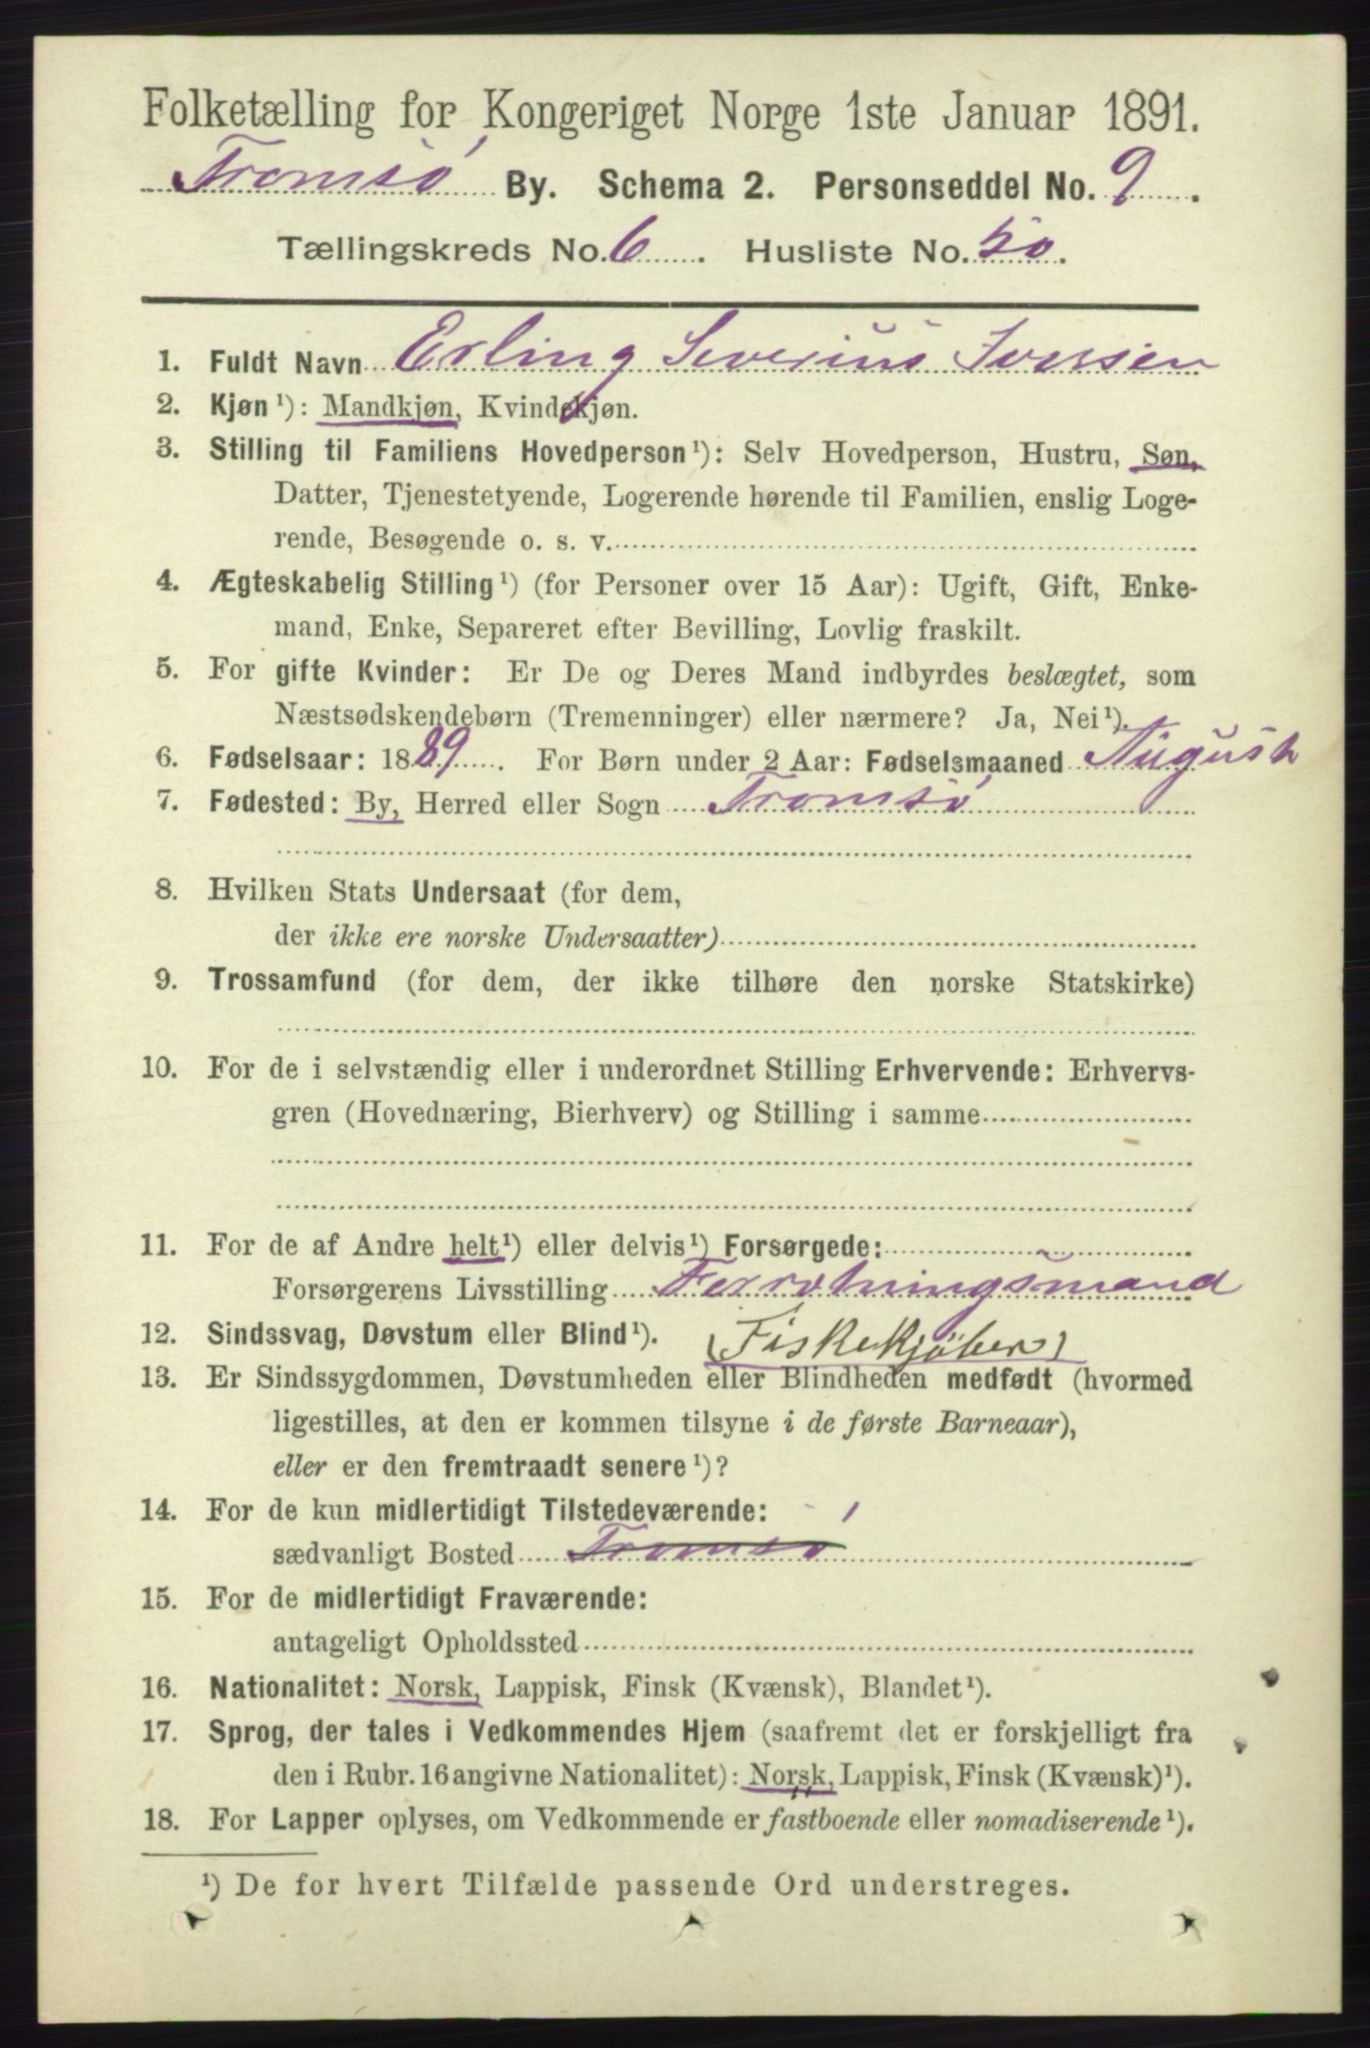 Folketælling for Kongeriget Norge 1ste Januar 1891.
Tromsö By. Schema 2. Personseddel No. 9.
Tællingskreds No. 6. Husliste No. 50.
1. Fuldt Navn Erling Severius Ivarsen
2. Kjøn¹): Mandkjøn, Kvindekjøn.
3. Stilling til Familiens Hovedperson¹): Selv Hovedperson, Hustru, Søn,
Datter, Tjenestetyende, Logerende hørende til Familien, enslig Loge-
rende, Besøgende o. s. v.
4. Ægteskabelig Stilling¹) (for Personer over 15 Aar): Ugift, Gift, Enke-
mand, Enke, Separeret efter Bevilling, Lovlig fraskilt.
5. For gifte Kvinder: Er De og Deres Mand indbyrdes beslægtet, som
Næstsødskendebørn (Tremenninger) eller nærmere? Ja, Nei¹).
6. Fødselsaar: 1889. For Børn under 2 Aar: Fødselsmaaned August
7. Fødested: By, Herred eller Sogn Tromsö
8. Hvilken Stats Undersaat (for dem,
der ikke ere norske Undersaatter)
9. Trossamfund (for dem, der ikke tilhøre den norske Statskirke)
10. For de i selvstændig eller i underordnet Stilling Erhvervende: Erhvervs-
gren (Hovednæring, Bierhverv) og Stilling i samme
11. For de af Andre helt¹) eller delvis¹) Forsørgede:
Forsørgerens Livsstilling Forretningsmand
12. Sindssvag, Døvstum eller Blind¹). (Fiskekjöber)
13. Er Sindssygdommen, Døvstumheden eller Blindheden medfødt (hvormed
ligestilles, at den er kommen tilsyne i de første Barneaar),
eller er den fremtraadt senere¹)?
14. For de kun midlertidigt Tilstedeværende:
sædvanligt Bosted Tromsö
15. For de midlertidigt Fraværende:
antageligt Opholdssted
16. Nationalitet: Norsk, Lappisk, Finsk (Kvænsk), Blandet¹).
17. Sprog, der tales i Vedkommendes Hjem (saafremt det er forskjelligt fra
den i Rubr. 16 angivne Nationalitet): Norsk, Lappisk, Finsk (Kvænsk)¹).
18. For Lapper oplyses, om Vedkommende er fastboende eller nomadiserende¹).
¹) De for hvert Tilfælde passende Ord understreges.